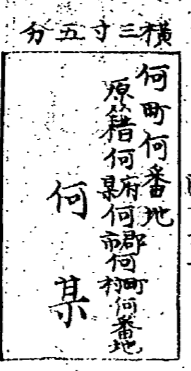 横三寸五分
何町何番地
原籍何府県何郡市何町村何番地
何某